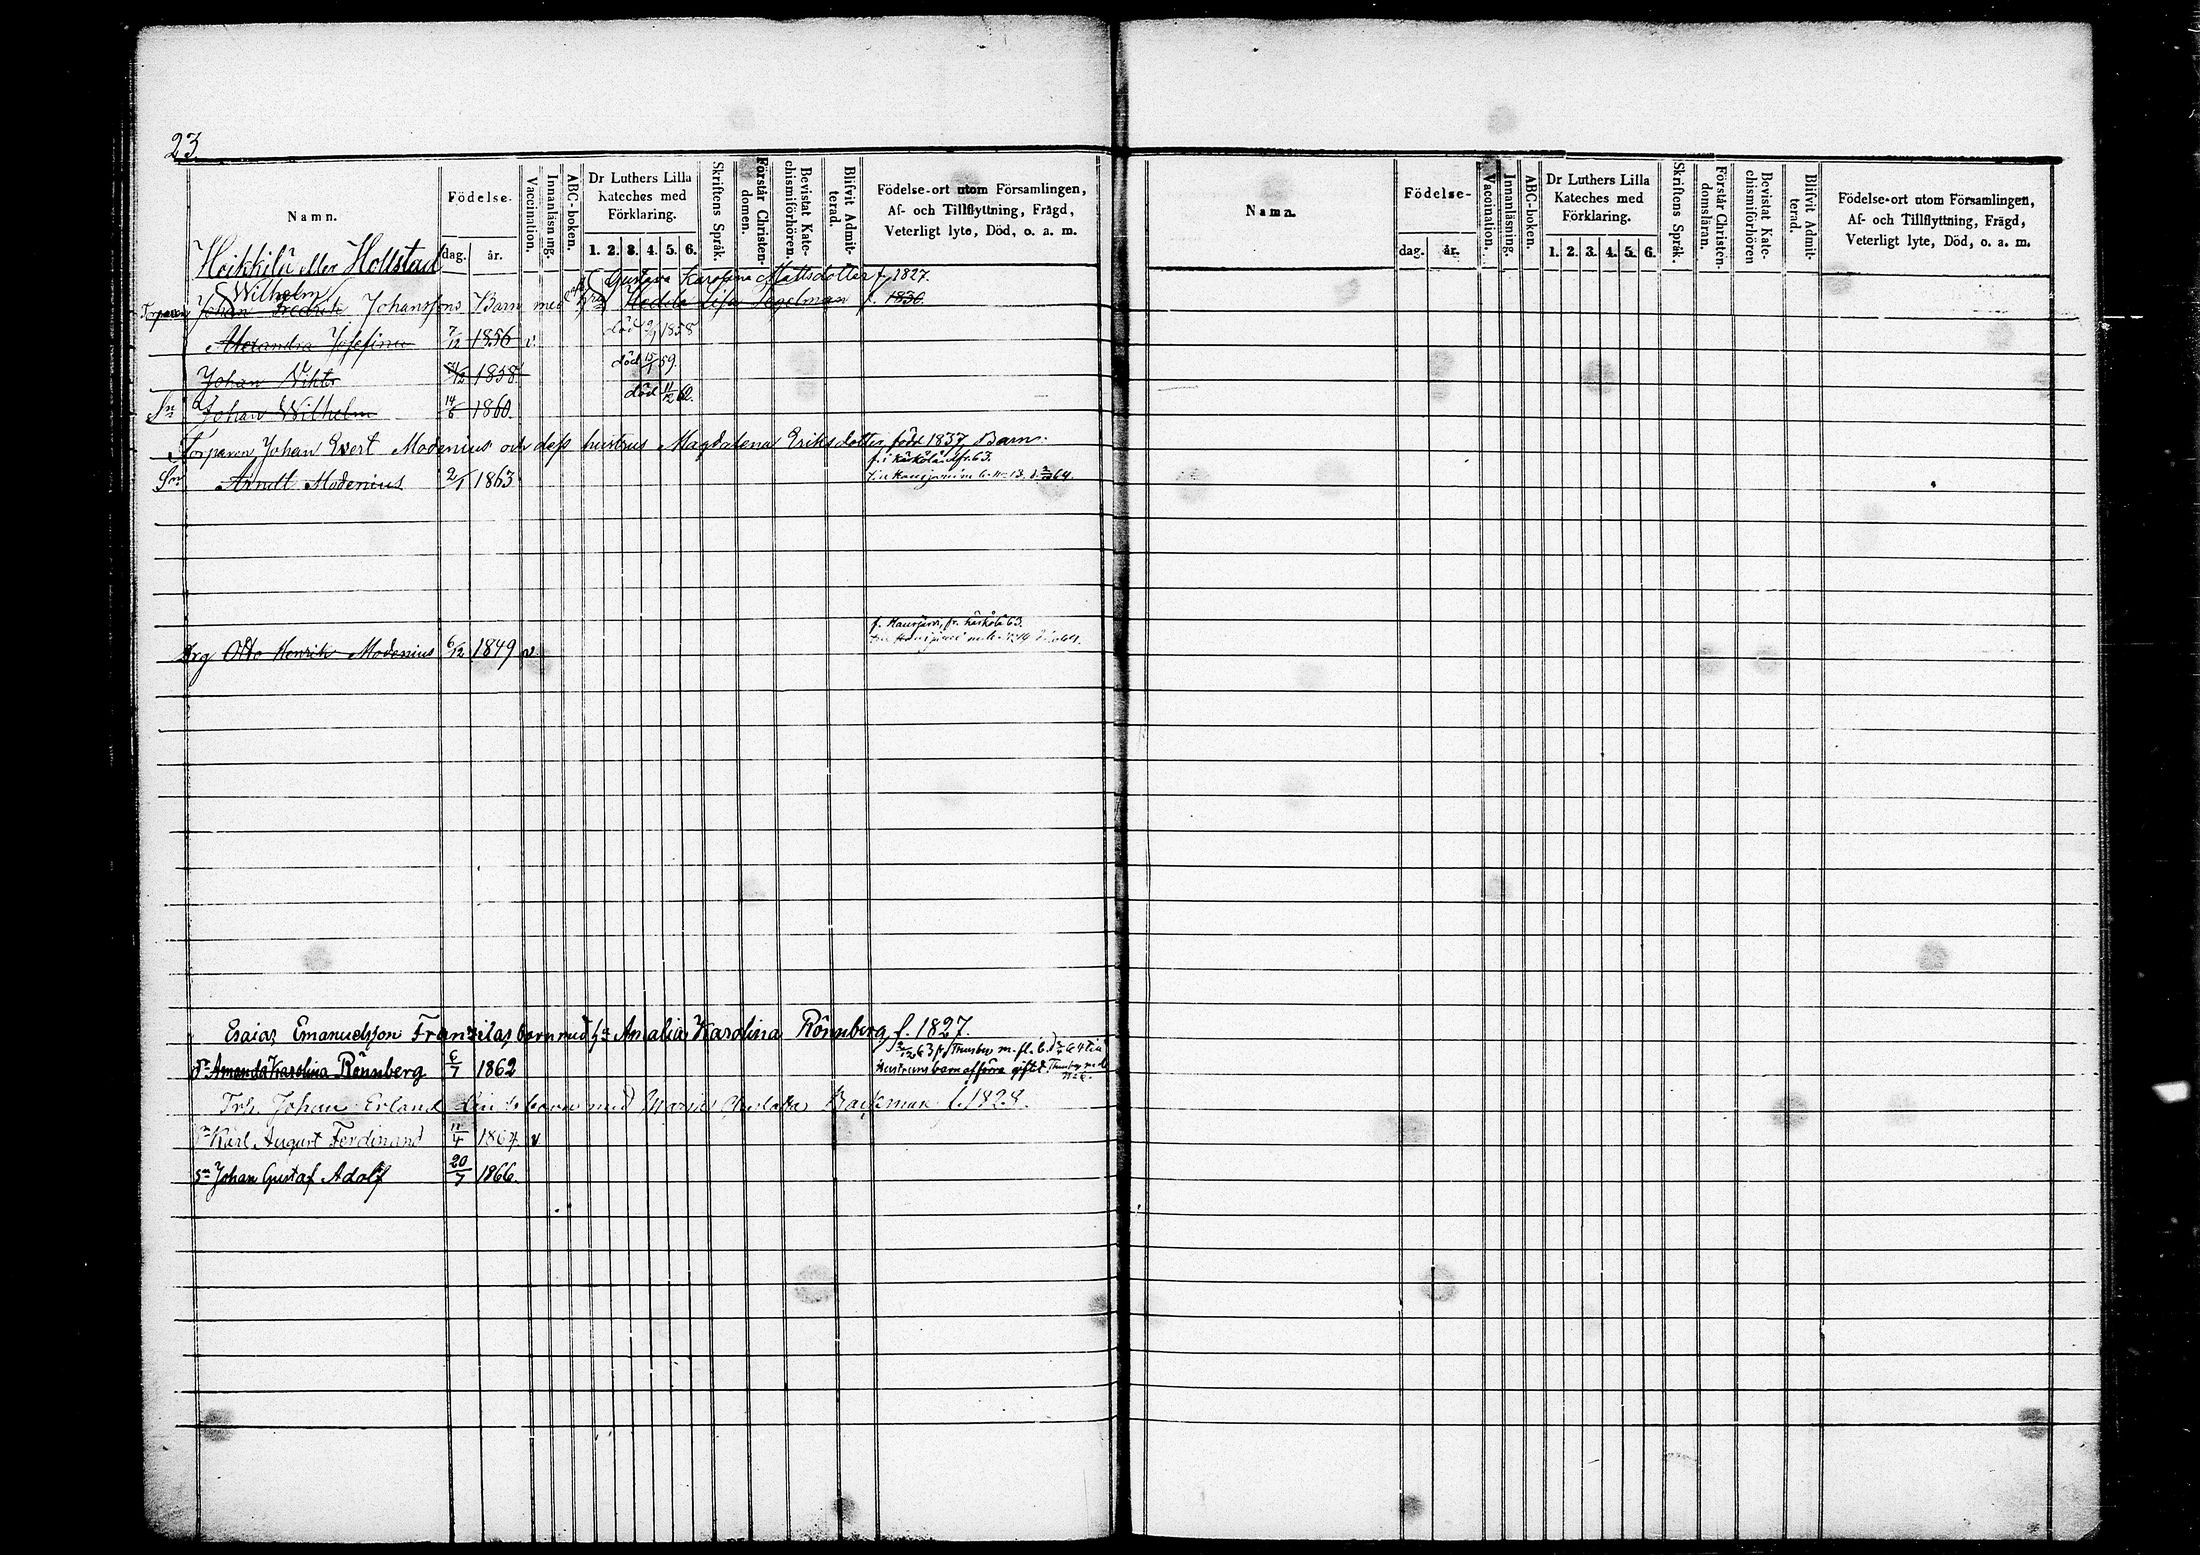 23.
Namn.
Födelse-
dag. år.
Vaccination.
Innanläsning.
ABC-boken.
Dr Luthers Lilla
Kateches med
Förklaring.
1. 2. 3. 4. 5. 6.
Skriftens Språk.
Förstår Christen-
domen.
Bevistat Kate-
chismiförhören.
Blifvit Admit-
terad.
Födelse-ort utom Församlingen,
Af- och Tillflyttning, Frägd,
Veterligt lyte, Död, o. a. m.
Heikkilä eller Hollstad
Gustava Karolina Mattsdotter f. 1827.
Wilhelm
Torparen Johan Fredrik Johanssons Barn med Hedda Lisa Segelman f. 1830.
Alexandra Josefina 7/12 1856 v. död 9/1 1858
Johan Viktor /12 1858 död 15/1 59.
Sn Johan Wilhelm 14/6 1860. död 11/12 62.
Torparen Johan Evert Modenius och dess hustrus Magdalena Eriksdotter, född 1837, Barn.
Sn Arndt Modenius 2/1 1863 64.
f. Hausjärvi, fr. 63.
Drg Otto Henrik Modenius 6/12 1849 v.
Esaias Emanuelsson Franzilas barn med h. Amalia Karolina Rönnberg, f. 1827.
Amanda Karolina Rönnberg 6/7 1862
hustruns barn af förra giftet.
Johan Erland barn med Maria f. 1828.
Karl August Ferdinand 11/4 1864. v
Sn Johan Gustaf Adolf 20/7 1866.
Namn.
Födelse-
dag. år.
Vaccination.
Innanläsning.
ABC-boken.
Dr Luthers Lilla
Kateches med
Förklaring.
1. 2. 3. 4. 5. 6.
Skriftens Språk.
Förstår Christen-
domsläran.
Bevistat Kate-
chismiförhören
Blifvit Admit-
terad.
Födelse-ort utom Församlingen,
Af- och Tillflyttning, Frägd,
Veterligt lyte, Död, o. a. m.